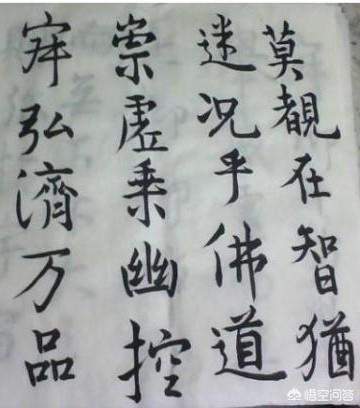 莫覩在智猶
迷况乎佛道
崇虚乘幽控
寂弘濟万品
悟空问答